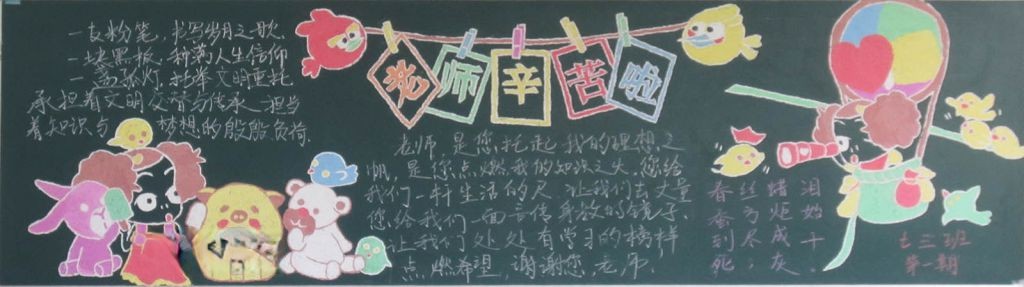 一支粉笔，书写岁月之歌
一块黑板，种满人生信仰
一盏孤灯，托举文明重托
承担着文明交替与传承，担当
着知识与梦想的殷殷负荷
老师辛苦啦
老师是您托起我的理想之
帆，是您点燃我的知识之火，您给
我们一杆生活的尺，让我们去丈量
您给我们一面言传身教的镜子，
让我们处处有学习的榜样
点燃希望，谢谢您，老师，
春蚕到死
丝方尽，
蜡炬成灰
泪始干。
七三班
第一期